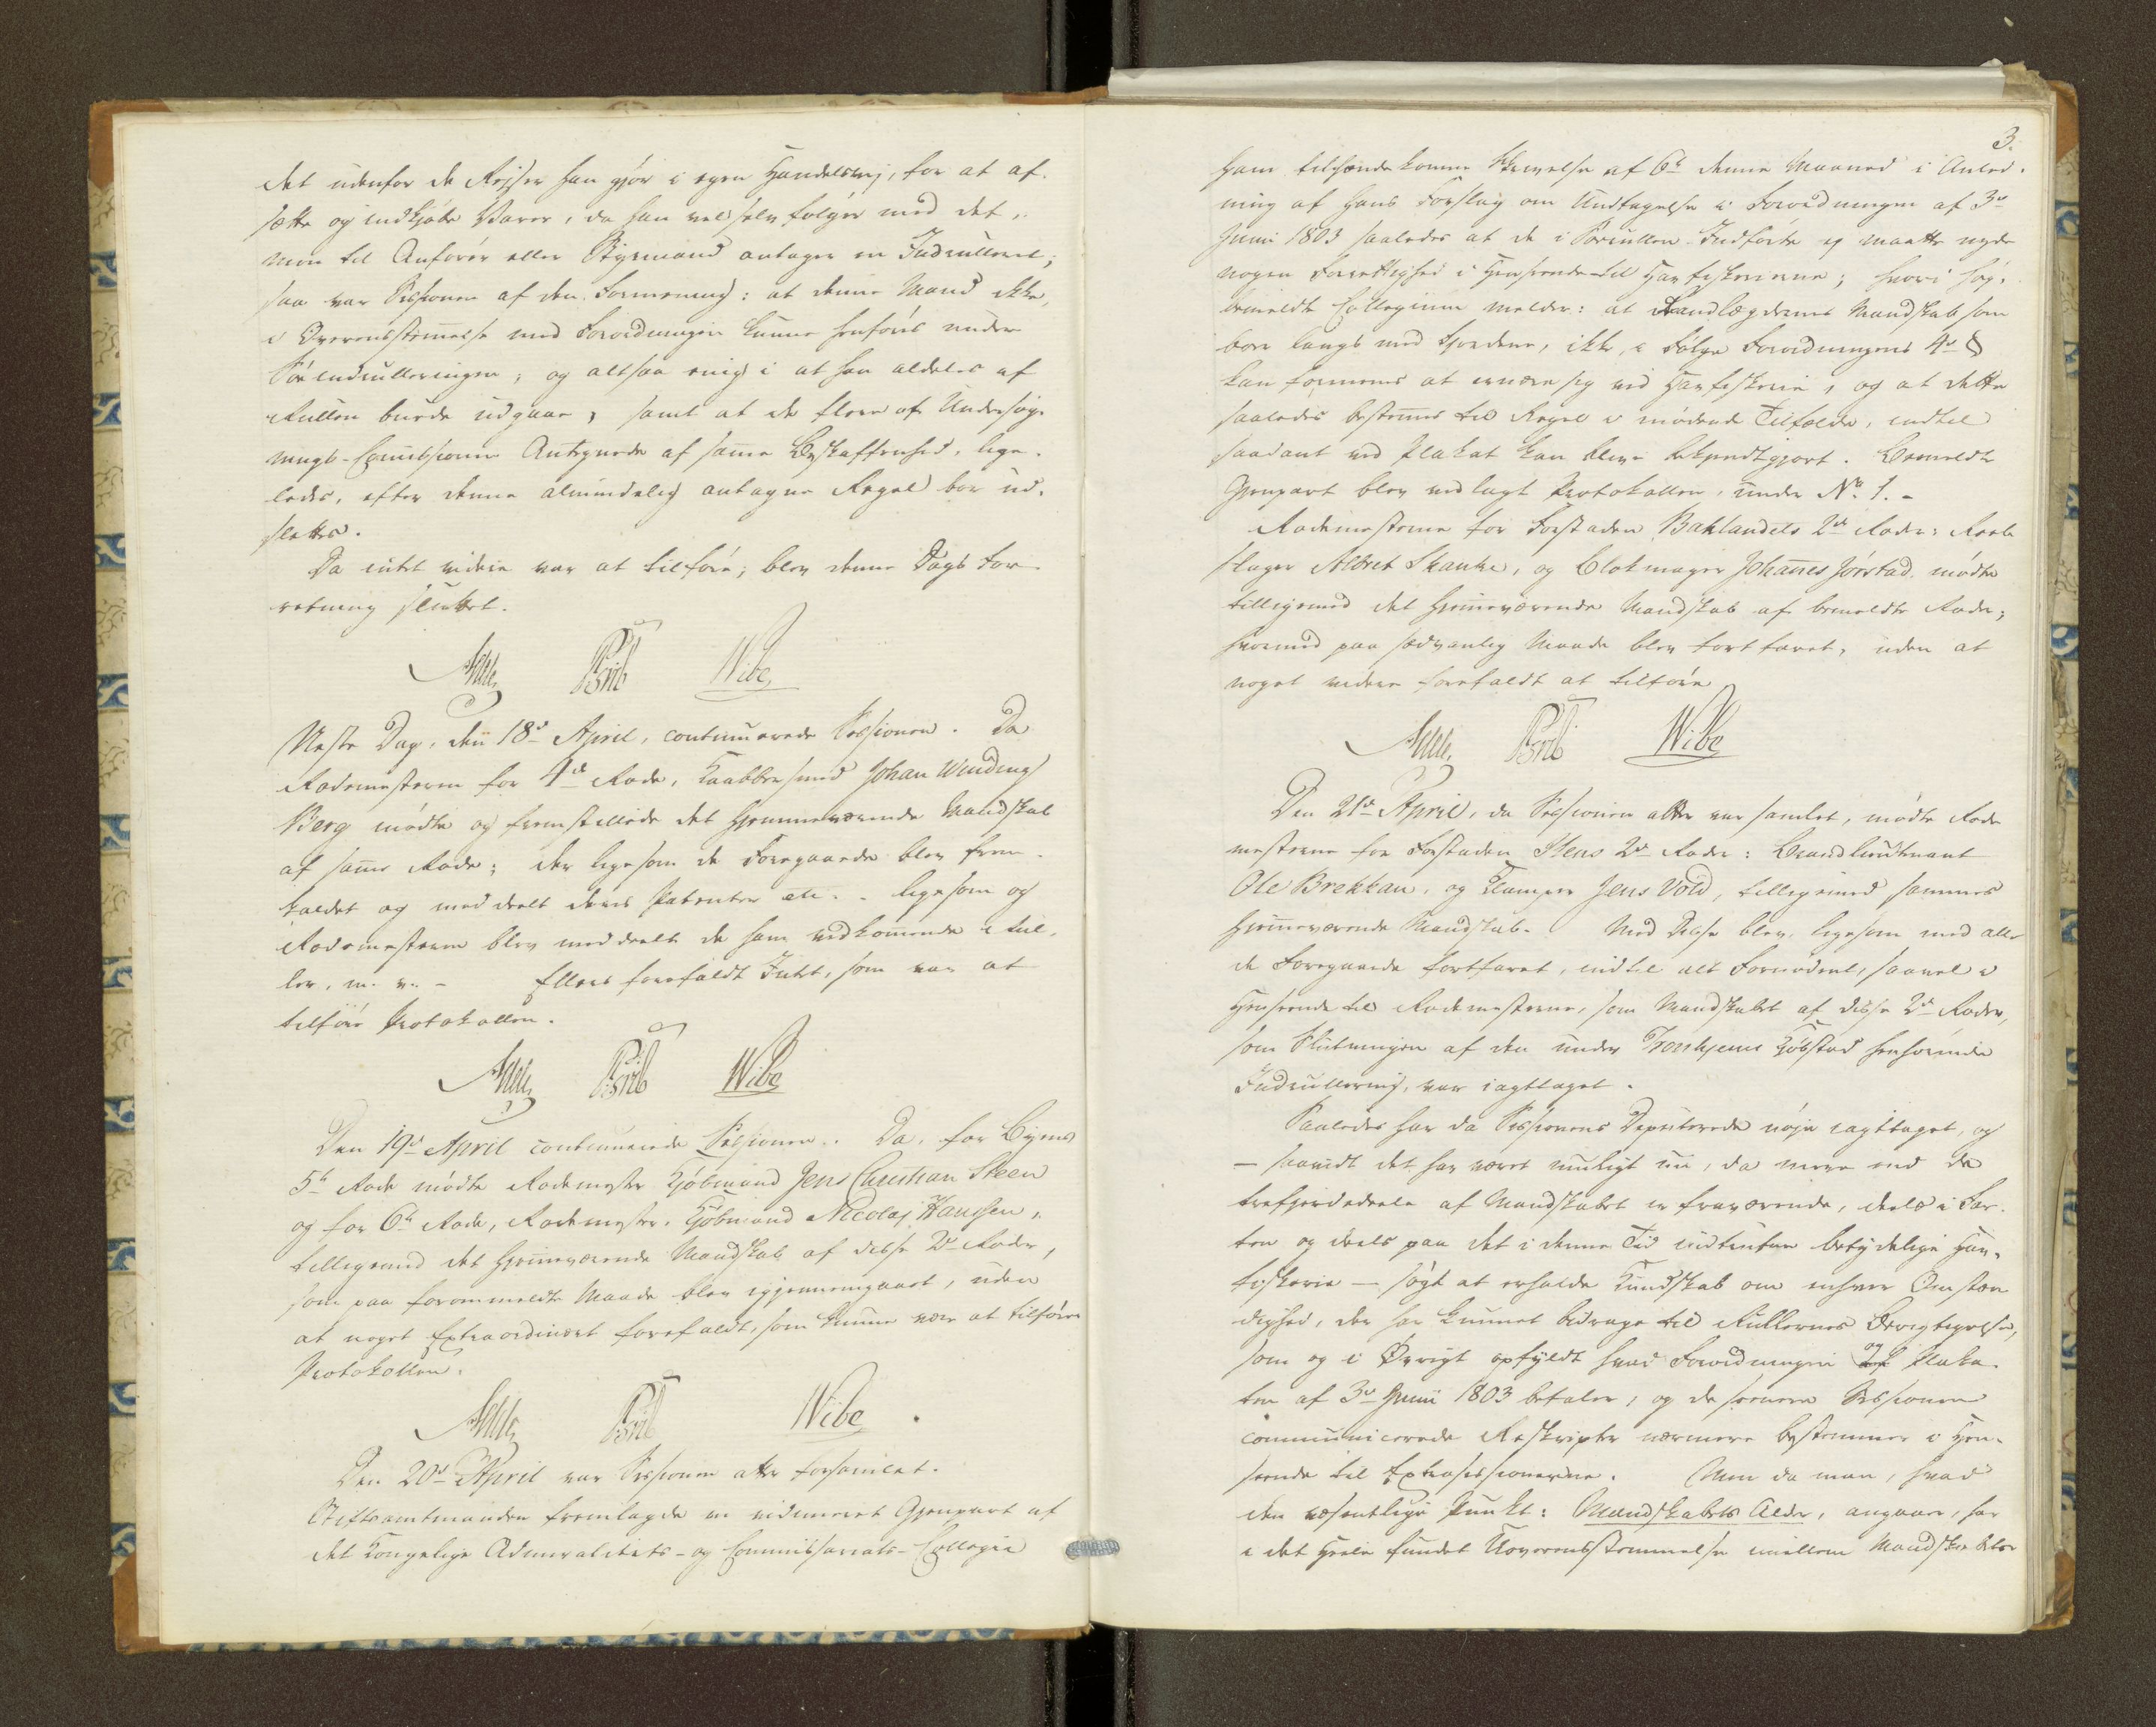 det udenfor de Rejser han gjør i egen Handelsvej, for at af-
sætte og indkjøbe Varer, da han vel selv følger med det,
men til Anfører eller Styrmand antager en Indrulleret;
saa var Sessionen af den Formening: at denne Mand ikke
i Overensstemmelse med Forordningen kunne henføres under
Søeindrulleringen; og altsaa enig i at han aldeles af
Rullen burde udgaae, samt at de flere af Undersøg-
nings-Commissionen Antegnede af samme Beskaffenhed, lige-
ledes, efter denne almindelig antagne Regel bør ud-
slettes.
Da intet videre var at tilføre, blev denne Dags For-
retning sluttet.
Wibe
Næste Dag, den 18de April, continuerede Sessionen. Da
Rodemesteren for 4de Rode, Kaabbersmed Johan Winding
Berg mødte og fremstillede det hjemmeværende Mandskab
af samme Rode; der ligesom de Foregaaende blev frem-
kaldet og meddeelt deres Patenter etc. ligesom og
Rodemesteren blev meddeelt de ham vedkommende
m. v. - Ellers forefaldt Intet, som var at
tilføre Protokollen.
Wibe
Den 19de April continuerede Sessionen. Da, for Byens
5te Rode mødte Rodemester Kjøbmand Jens Christian Steen
og for 6te Rode, Rodemester, Kjøbmand Nicolaj Hanssen,
tilligemed det hjemmeværende Mandskab af disse 2de Roder,
som paa forommeldte Maade blev igjennemgaaet, uden
at noget Extraordinært forefaldt, som kunne være at tilføre
Protokollen.
Wibe
Den 20de April var Sessionen atter forsamlet.
Stiftsamtmanden fremlagde en vidimeret Gjenpart af
det Kongelige Admiralitets- og Commissariats-Collegii
3.
ham tilhændekomne Skrivelse af 6te denne Maaned i Anled-
ning af hans Forslag om Undtagelse i Forordningen af 3de
Junii 1803 saaledes at de i Søerullen Indførte ej maatte nyde
nogen Forrettighed i Henseende til Havfiskerierne; hvori høj-
bemeldte Collegium melder: at Landlægdernes Mandskab som
boer langs med Fjordene, ikke, i Følge Forordningens 4de §
kan formenes at ernære sig ved Havfiskerie, og at dette
saaledes bestemmes til Regel i mødende Tilfælde, indtil
saadant ved Plakat kan blive bekjendtgjort. Bemeldte
Gjenpart blev vedlagt Protokollen, under No 1. -
Rodemesterne for Forstaden Baklandets 2de Roder: Reeb
slager Aldret Skanke, og Blokmager Johannes Jørstad mødte
tilligemed det hjemmeværende Mandskab af bemeldte Roder;
hvormed paa sædvanlig Maade blev fortfaret, uden at
noget videre forefaldt at tilføre
Wibe
Den 21de April, da Sessionen atter var samlet, mødte Rode
mesterne for Forstaden Ilens 2de Roder: Brandlieutenant
Ole Brekkan, og Kleinsmed Jens Vold, tilligemed sammes
hjemmeværende Mandskab. Med Disse blev ligesom med alle
de Foregaaende fortfaret, indtil alt Fornødent, saavel i
Henseende til Rodemesterne, som Mandskabet af disse 2de Roder,
som Slutningen af den under Tronhjems Kjøbstad henhørende
Indrullering, var iagttaget.
Saaledes har da Sessionens Deputerede nøje iagttaget, og
- saavidt det har været muligt nu, da mere end de
trefjerdedeele af Mandskabet er fraværende, deels i Far-
ten og deels paa det i denne Tid indtræffende betydelige Hav-
fiskerie - søgt at erholde Kundskab om enhver Omstæn
dighed, der har kunnet bidrage til Rullernes Berigtigelse,
som og i Øvrigt opfyldt hvad Forordningen og Plaka-
ten af 3de Junii 1803 befaler, og de seenere Sessionen
communicerede Reskripter nærmere bestemmer i Hen-
seende til Extrasessionerne. Men da man, hvad
den væsentlige Punkt: Mandskabets Alder, angaaer, har
i det Heele fundet Uoverensstemmelse imellem Mandskabets